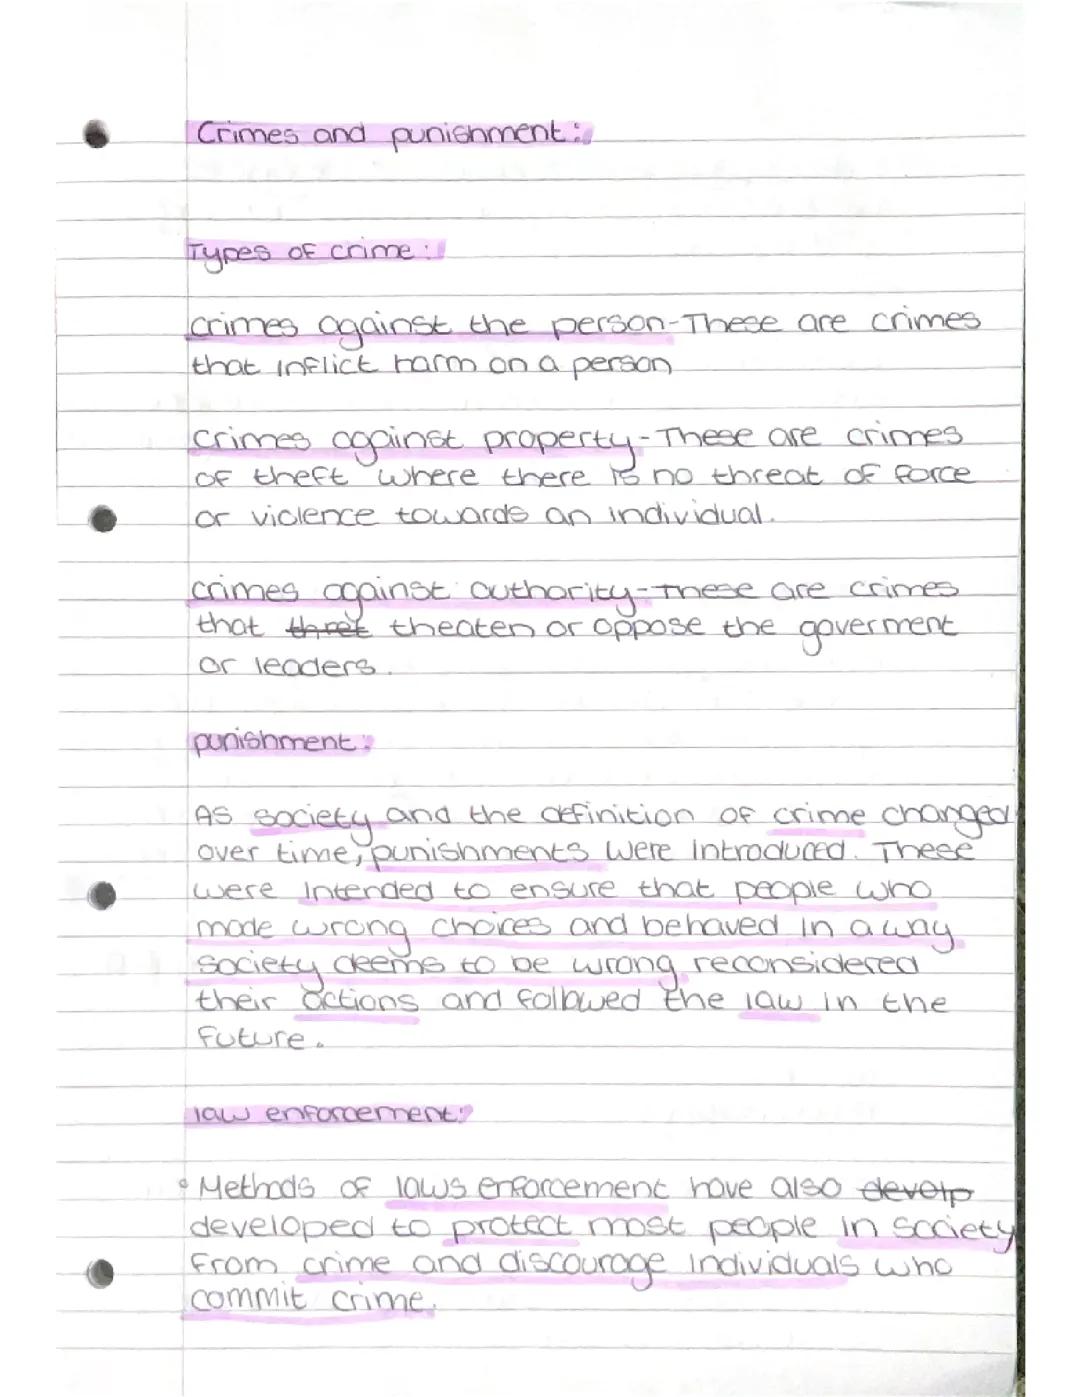 Crimes and punishment:
Types of crime:
crimes against the person-These are crimes
that inflict harm on a person
crimes against property-These are crimes
of theft where there is no threat of force
or violence towards an individual.
crimes against authority-These are crimes
that thret theaten or oppose the goverment
or leaders.
punishment:
As society and the definition of crime changed
over time, punishments were introduced. These
were intended to ensure that people who
made wrong choices and behaved in a way
society deems to be wrong reconsidered
their actions and followed the law in the
future.
law enforcement:
• Methods of laws enforcement have also develp
developed to protect most people in society
from crime and discourage individuals who
commit crime.